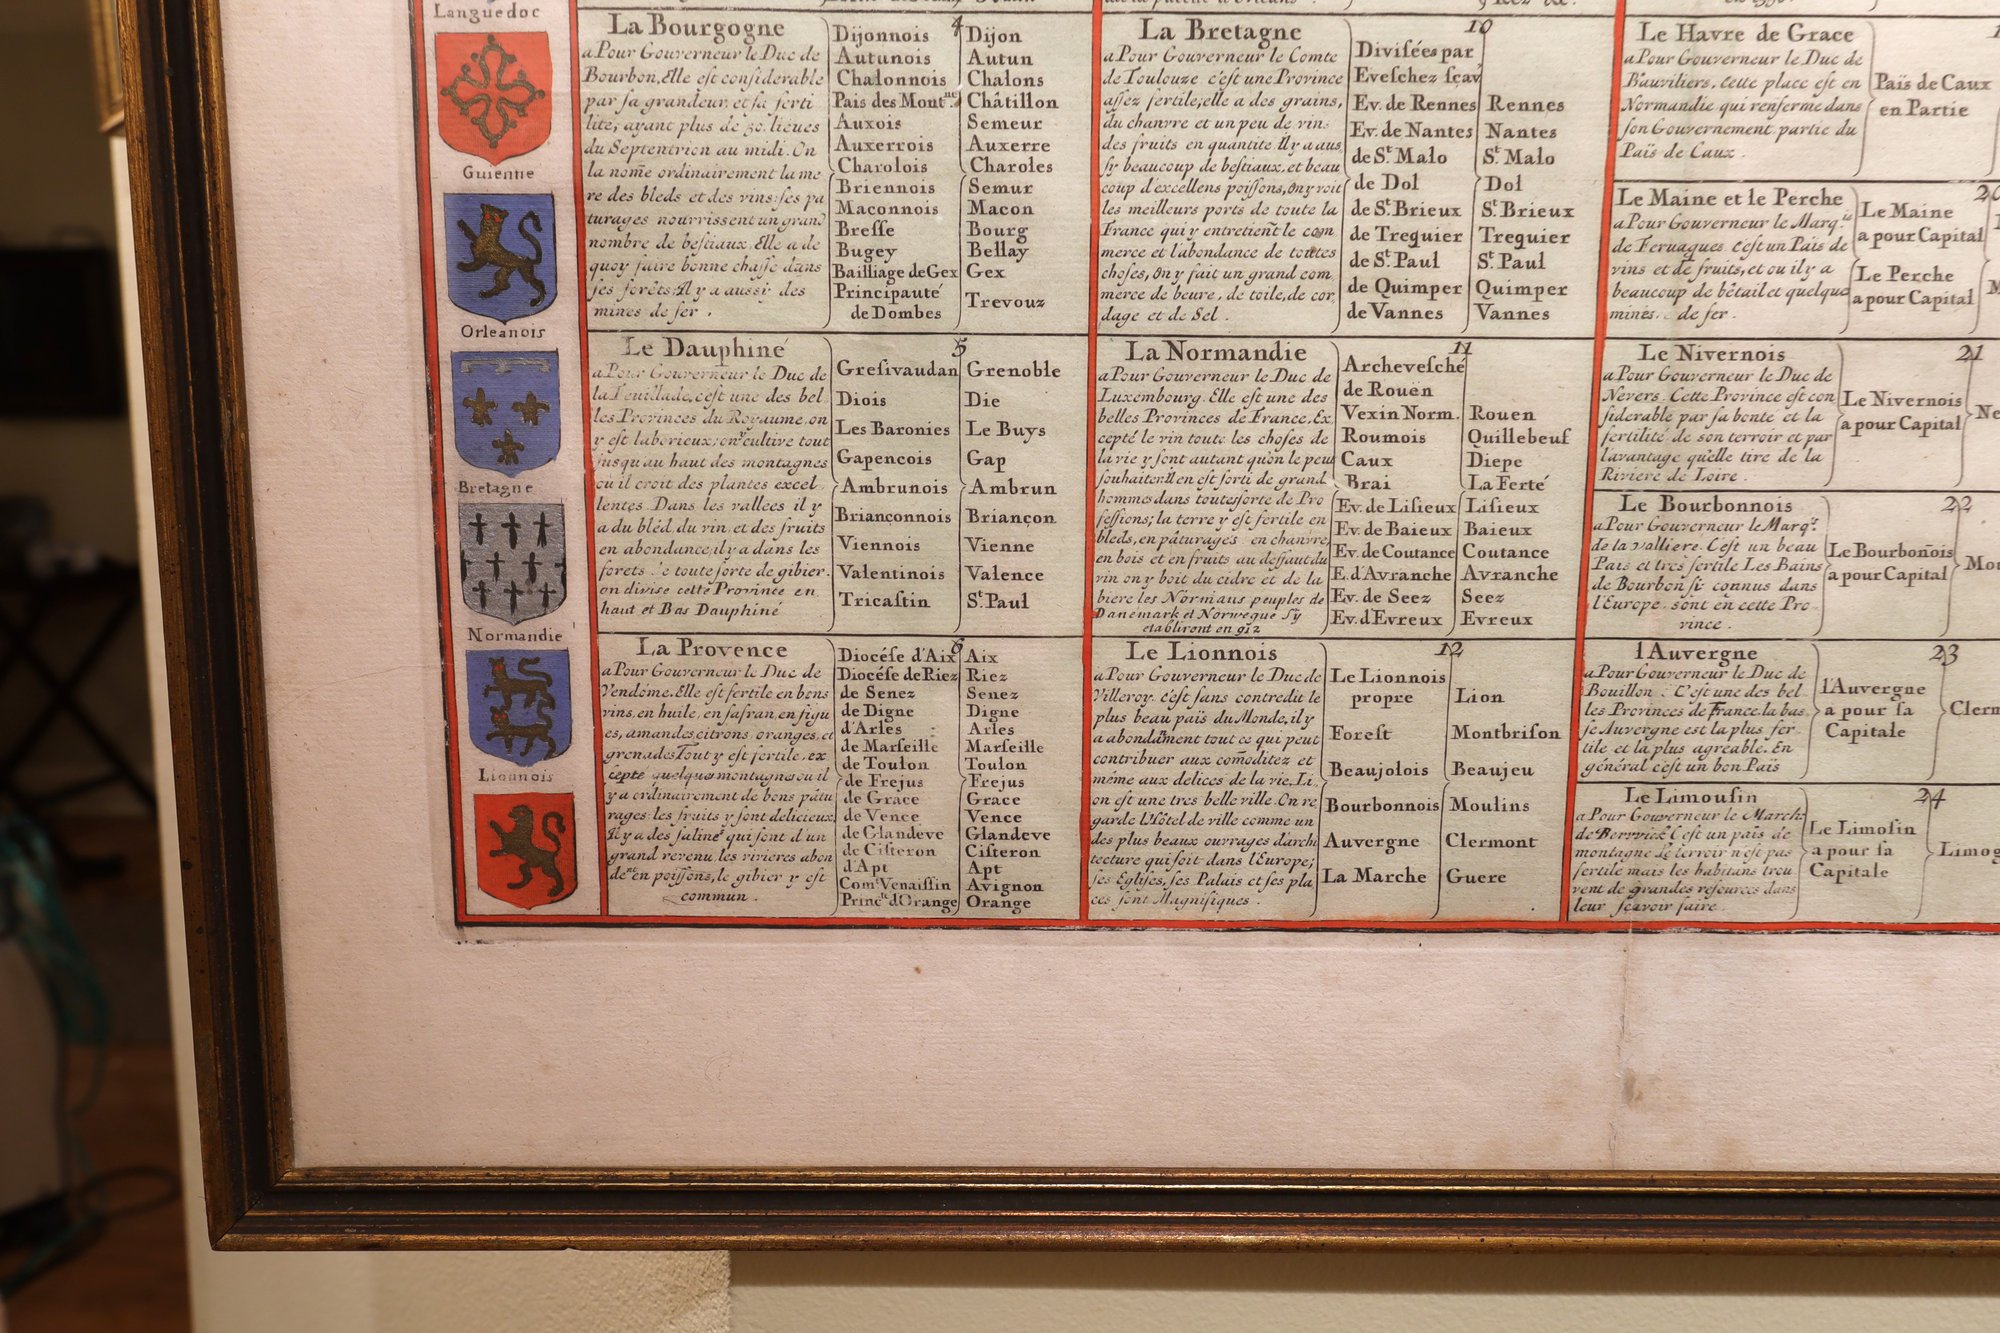 Languedoc
Guienne
Orleanois
Bretagne
Normandie
Lionnois
La Bourgogne
a Pour Gouverneur le Duc de
Bourbon, Elle est considerable
par sa grandeur, et sa ferti
lité, ayant plus de 50. lieues
du Septentrion au midi. On
la nom̄e ordinairement la me
re des bleds et des vins: ses pa
turages nourrissent un grand
nombre de bestiaux. Elle a de
quoy faire bonne chasse dans
ses forêts: Il y a aussi des
mines de fer.
4
Dijonnois Dijon
Autunois Autun
Chalonnois Chalons
Païs des Mont.ne Châtillon
Auxois Semeur
Auxerrois Auxerre
Charolois Charoles
Briennois Semur
Maconnois Macon
Bresse Bourg
Bugey Bellay
Bailliage de Gex Gex
Principauté
de Dombes Trevouz
Le Dauphiné
a Pour Gouverneur le Duc de
la Feuillade, c'est une des bel
les Provinces du Royaume, on
y est laborieux; on y cultive tout
jusqu'au haut des montagnes
ou il croit des plantes excel
lentes. Dans les vallees il y
a du bléd, du vin, et des fruits
en abondance, il y a dans les
forets de toute sorte de gibier.
on divise cette Province en
haut et Bas Dauphiné
5
Gresivaudan Grenoble
Diois Die
Les Baronies Le Buys
Gapencois Gap
Ambrunois Ambrun
Briançonnois Briançon
Viennois Vienne
Valentinois Valence
Tricastin St. Paul
La Provence
a Pour Gouverneur le Duc de
Vendôme. Elle est fertile en bons
vins, en huile, en safran, en figu
es, amandes, citrons, oranges, et
grenades Tout y est fertile, ex
cepté quelques montagnes ou il
y a ordinairement de bons pâtu
rages: les fruits y sont délicieux,
Il y a des salines qui sont d'un
grand revenu, les rivieres abon
dent en poissons, le gibier y est
commun.
6
Diocése d'Aix Aix
Diocése de Riez Riez
de Senez Senez
de Digne Digne
d'Arles Arles
de Marseille Marseille
de Toulon Toulon
de Frejus Frejus
de Grace Grace
de Vence Vence
de Glandeve Glandeve
de Cisteron Cisteron
d'Apt Apt
Com.t Venaissin Avignon
Princ.té d'Orange Orange
La Bretagne
a Pour Gouverneur le Comte
de Toulouze c'est une Province
assez fertile; elle a des grains,
du chanvre et un peu de vin.
des fruits en quantité. Il y a aus
sy beaucoup de bestiaux, et beau
coup d'excellens poissons, On y voit
les meilleurs ports de toute la
France qui y entretient le com
merce et l'abondance de toutes
choses, On y fait un grand com
merce de beure, de toile, de cor
dage et de Sel.
10
Divisées par
Eveschez sçav
Ev. de Rennes Rennes
Ev. de Nantes Nantes
de St. Malo St. Malo
de Dol Dol
de St. Brieux St. Brieux
de Treguier Treguier
de St. Paul St. Paul
de Quimper Quimper
de Vannes Vannes
La Normandie
a Pour Gouverneur le Duc de
Luxembourg. Elle est une des
belles Provinces de France. Ex
cepté le vin toute les choses de
la vie y sont autant qu'on le peut
souhaiter: Il en est sorti de grand
hommes dans toutes sorte de Pro
fessions; la terre y est fertile en
bleds, en pâturages en chanvre,
en bois et en fruits au deffaut du
vin on y boit du cidre et de la
biere les Normans peuples de
Danemark et Norwegue s'y
etabliront en 912
11
Archevesché
de Rouen
Vexin Norm. Rouen
Roumois Quillebeuf
Caux Diepe
Brai La Ferté
Ev. de Lisieux Lisieux
Ev. de Baieux Baieux
Ev. de Coutance Coutance
E. d'Avranche Avranche
Ev. de Seez Seez
Ev. d'Evreux Evreux
Le Lionnois
a Pour Gouverneur le Duc de
Villeroy. c'est sans contredit le
plus beau païs du Monde, il y
a abondament tout ce qui peut
contribuer aux com̄oditez et
même aux delices de la vie. Li
on est une tres belle ville. On re
garde L'Hôtel de ville comme un
des plus beaux ouvrages d'archi
tecture qui soit dans l'Europe;
ses Eglises, ses Palais et ses pla
ces sont Magnifiques.
12
Le Lionnois
propre Lion
Forest Montbrison
Beaujolois Beaujeu
Bourbonnois Moulins
Auvergne Clermont
La Marche Guere
Le Havre de Grace
a Pour Gouverneur le Duc de
Bauviliers. Cette place est en
Normandie qui renferme dans
son Gouvernement partie du
Païs de Caux.
Païs de Caux
en Partie
Le Maine et le Perche
a Pour Gouverneur le Marq.is
de Feruaques. C'est un Païs de
vins et de fruits, et ou il y a
beaucoup de bêtail et quelque
mines de fer.
20
Le Maine
a pour Capital
Le Perche
a pour Capital
Le Nivernois
a Pour Gouverneur le Duc de
Nevers. Cette Province est con
siderable par sa bonte et la
fertilité de son terroir et par
l'avantage qu'elle tire de la
Riviere de Loire.
21
Le Nivernois
a pour Capital
Ne
Le Bourbonnois
a Pour Gouverneur le Marq.s
de la Valliere. C'est un beau
Païs et tres fertile Les Bains
de Bourbon si connus dans
l'Europe sont en cette Pro
vince.
22
Le Bourbon̄ois
a pour Capital
Mou
l'Auvergne
a Pour Gouverneur le Duc de
Bouillon: C'est une des bel
les Provinces de France. la bas
se Auvergne est la plus fer
tile et la plus agreable. En
général c'est un bon Païs
23
l'Auvergne
a pour sa
Capitale
Clerm
Le Limousin
a Pour Gouverneur le March.
de Berrvick C'est un païs de
montagne Le terroir n'est pas
fertile mais les habitans trou
vent de grandes resources dans
leur sçavoir faire.
24
Le Limosin
a pour sa
Capitale
Limog